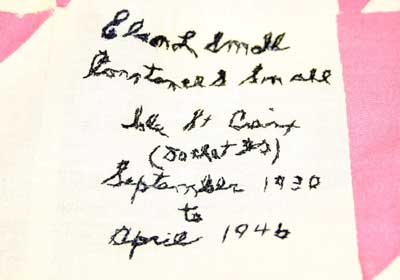 Elson L Small
Constance S Small
Isle St Croix
(Dochet Is)
September 1930
to
April 1946